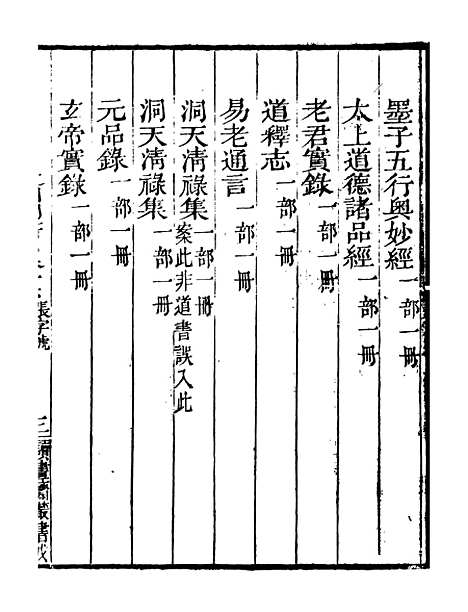 墨子五行興妙經一部一冊
太上道德諸品經一部一冊
老君實錄一部一冊
道釋志一部一冊
易老通言一部一冊
洞天清祿集一部一冊案此非道書誤入此
洞天清祿集一部一冊
元品錄一部一冊
玄帝實錄一部一冊
張字號
三
讀畫齋叢書戊